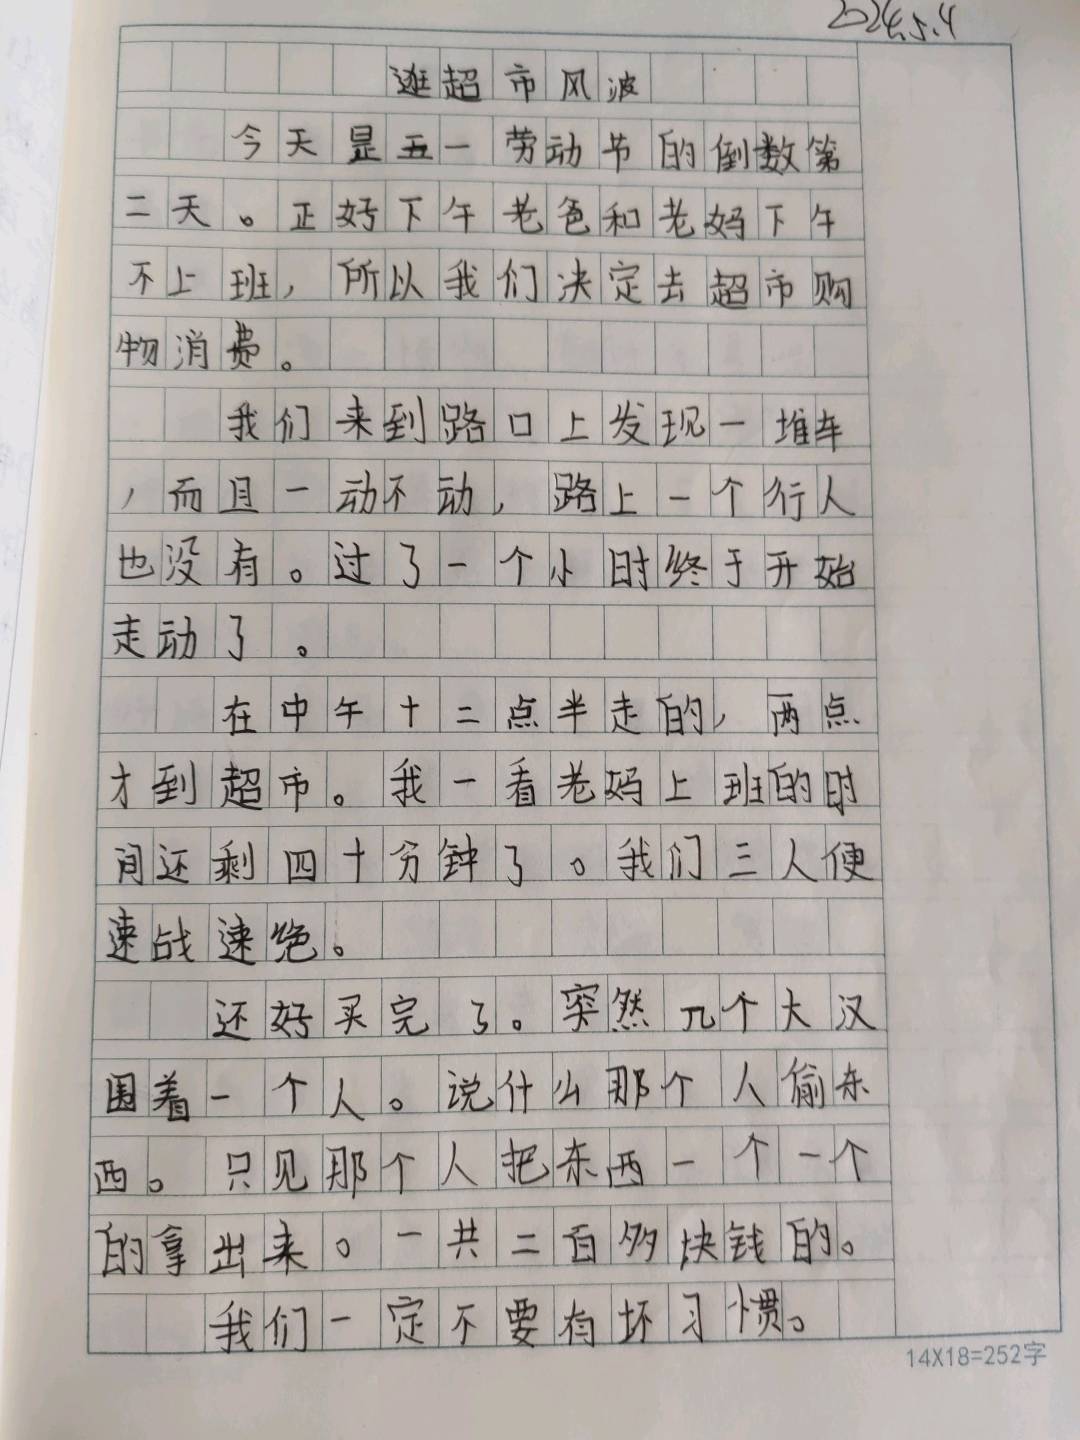 2024.5.4
逛超市风波
今天是五一劳动节的倒数第
二天。正好下午老爸和老妈下午
不上班，所以我们决定去超市购
物消费。
我们来到路口上发现一堆车
，而且一动不动，路上一个行人
也没有。过了一个小时终于开始
走动了。
在中午十二点半走的，两点
才到超市。我一看老妈上班的时
间还剩四十分钟了。我们三人便
速战速绝。
还好买完了。突然几个大汉
围着一个人。说什么那个人偷东
西。只见那个人把东西一个一个
的拿出来。一共二百多块钱的。
我们一定不要有坏习惯。
14X18=252字